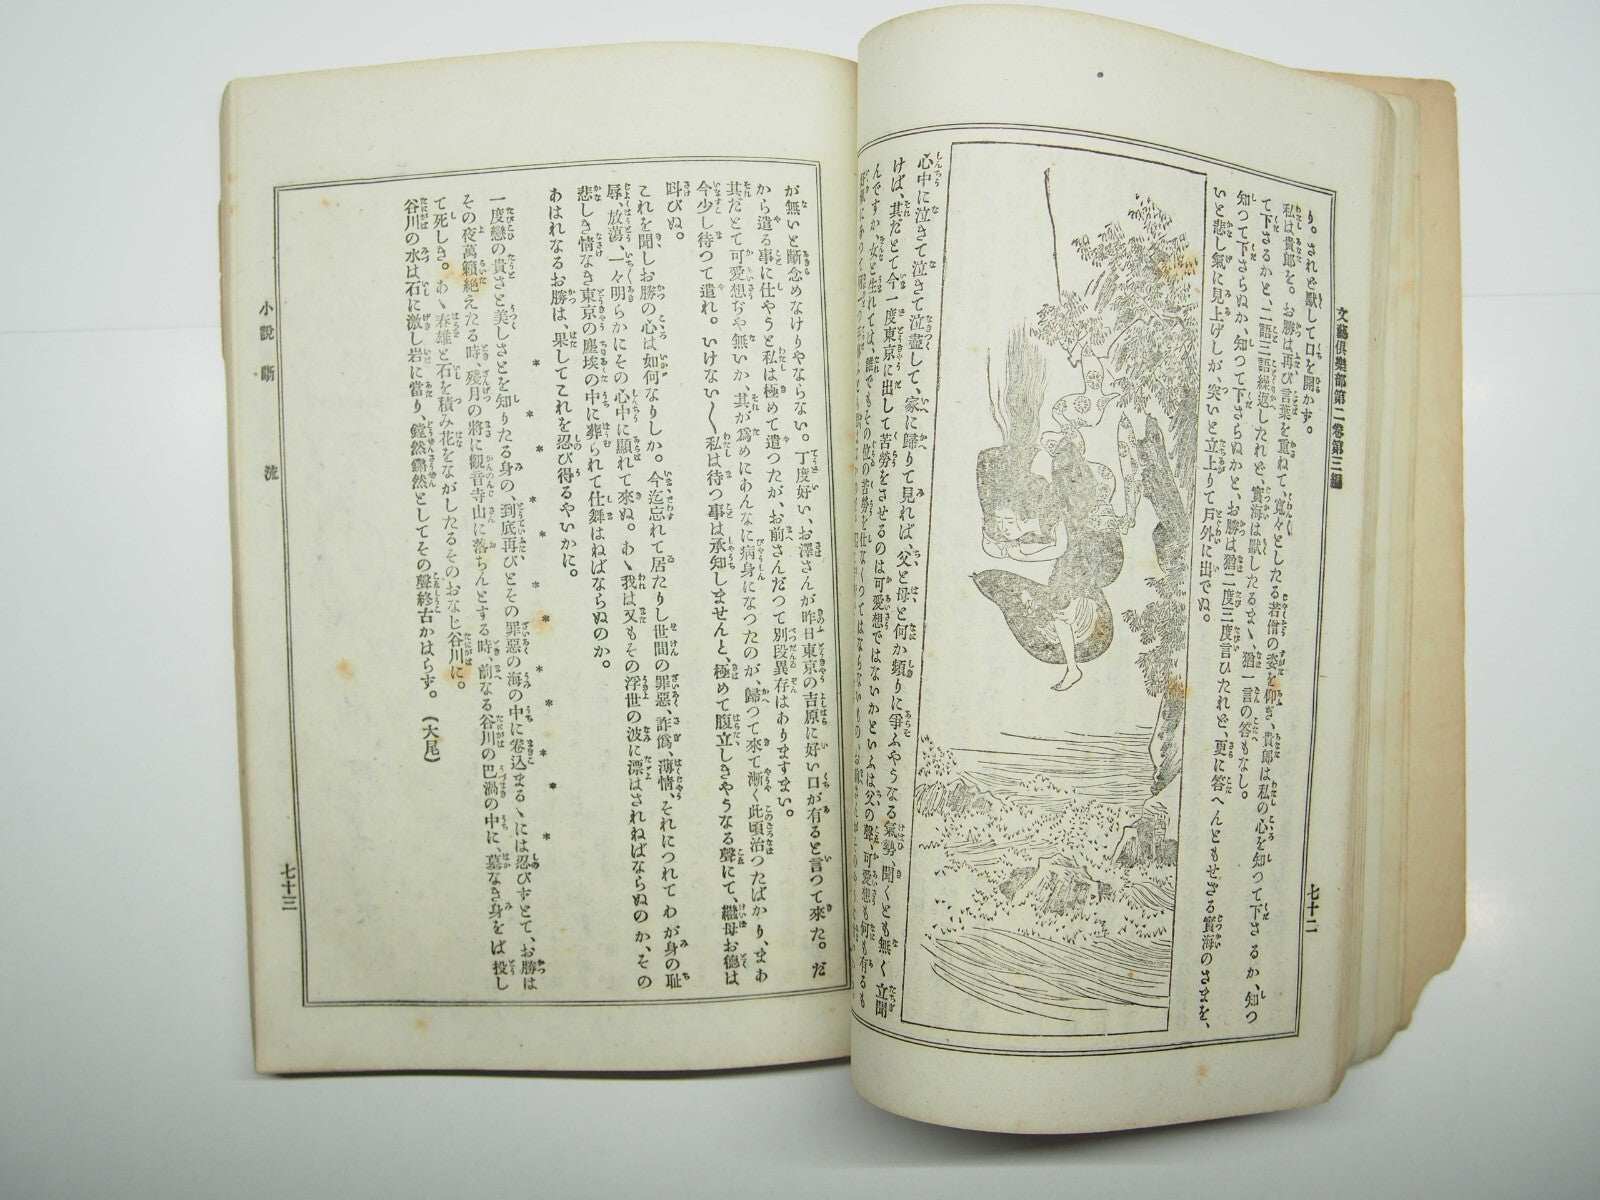 文藝倶樂部第二卷第三編
七十二
り。されど默して口を開かず。
私は貴郎を。お勝は再び言葉を重ねて、寬々としたる若僧の姿を仰ぎ、貴郎は私の心を知つて下さるか、知つ
て下さるかと、二語三語繰返したれど、實海は默したるまゝ、猶一言の答もなし。
知つて下さらぬか、知つて下さらぬかと、お勝は猶二度三度言ひたれど、更に答へんともせざる實海のさまを、
いと悲し氣に見上げしが、突いと立上りて戸外に出でぬ。
心中に泣きて泣きて泣盡して、家に歸りて見れば、父と母と何か頻りに爭ふやうなる氣勢、聞くとも無く立聞
けば、其だとて今一度東京に出して苦勞をさせるのは可愛想ではないかといふは父の聲、可愛想も何も有るも
んですか、女と生れては、誰でもその位の苦勞を仕なくつてはならないもの、
が無いと斷念めなけりやならない。丁度好い、お澤さんが昨日東京の吉原に好い口が有ると言つて來た。だ
から遣る事に仕やうと私は極めて遣つたが、お前さんだつて別段異存はありますまい。
其だとて可愛想ぢや無いか、其が爲めにあんなに病身になつたのが、歸つて來て漸く此頃治つたばかり、まあ
今少し待つて遣れ。いけない〳〵私は待つ事は承知しませんと、極めて腹立しきやうなる聲にて、繼母お德は
叫びぬ。
これを聞しお勝の心は如何なりしか。今迄忘れて居たりし世間の罪惡、詐僞、薄情、それにつれてわが身の耻
辱、放蕩、一々明らかにその心中に顯れて來ぬ。あゝ我は又もその浮世の波に漂はされねばならぬのか、その
悲しき情なき東京の塵埃の中に葬られて仕舞はねばならぬのか。
あはれなるお勝は、果してこれを忍び得るやいかに。
＊＊＊＊＊＊＊＊＊
一度戀の貴さと美しさとを知りたる身の、到底再びとその罪惡の海の中に卷込まるゝには忍びずとて、お勝は
その夜萬籟絕えたる時、殘月の將に觀音寺山に落ちんとする時、前なる谷川の巴渦の中に、墓なき身をば投し
て死しき。あゝ春雄と石を積み花をながしたるそのおなじ谷川に。
谷川の水は石に激し岩に當り、鏜然鏘然としてその聲終古かはらず。（大尾）
小說 斷流
七十三